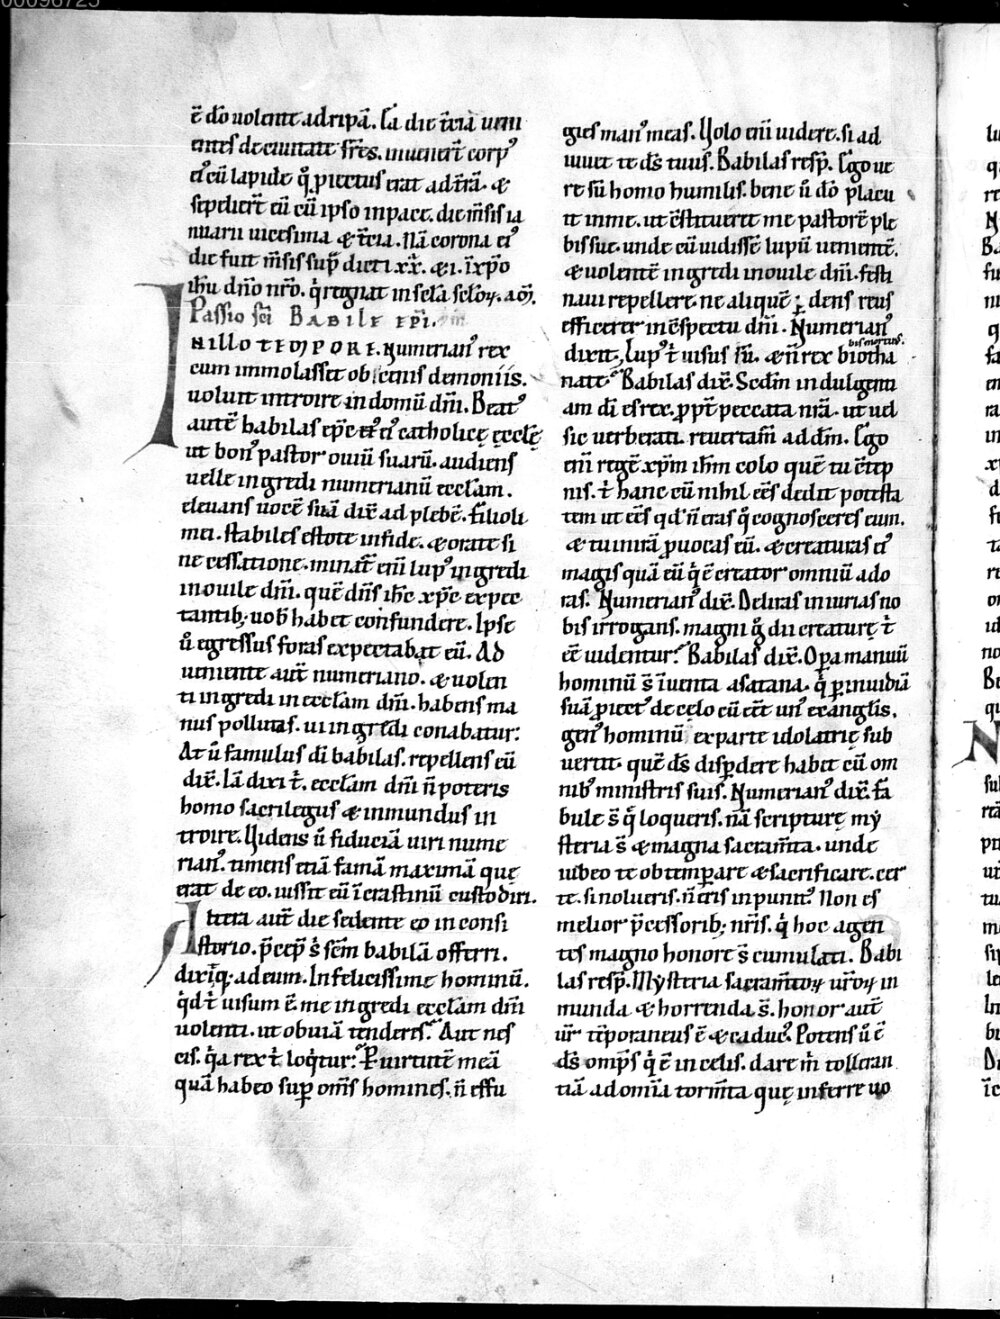 ē dō uolente ad ripā. Ea die t̄cia ueni
entes de ciuitate frēs. inuener̄t corp᷒
ei᷒ cū lapide q̊ piectus erat ad tr̄ā. &
sepelier̄t eū cū ipso in pace. die m̄sis ia
nuarii uicesima & t̄cia. Nā corona ei᷒
die fuit m̄sis sup̄ dicti xx̄. & i. in xp̄o
ihū dn̄o nr̄o. q̇ regnat in scl̄a scl̄oꝝ. am̄.
Passio sc̄i BABILE EPĪ.
IN ILLO TEMPORE. Numerian᷒ rex
cum immolasset obscenis demoniis.
uoluit introire in domū dn̄i. Beat᷒
autē babilas ep̄c ei᷒ catholicę ecclę
ut bon᷒ pastor ouiū suarū. audiens
uelle ingredi numerianū eccl̄am.
eleuans uocē suā dix̄ ad plebē. filioli
mei. stabiles estote in fide. & orate si
ne cessatione. minat᷒ eni lup᷒ ingredi
in ouile dn̄i. quē dn̄s ihc̄ xp̄c expec
tantib; uob̄ habet confundere. Ipse
ū egressus foras expectabat eū. Ad
ueniente aut̄ numeriano. & uolen
ti ingredi in eccl̄am dn̄i. habens ma
nus pollutas. ui ingredi conabatur:
At ū famulus dī babilas. repellens eū
dix̄. Iā dixi t̄. eccl̄am dn̄i n̄ poteris
homo sacrilegus & inmundus in
troire. Uidens ū fiduciā uiri nume
rian᷒. timens etiā famā maximā quę
erat de eo. iussit eū ī crastinū custodiri.
Altera aut̄ die sedente eo in consi
storio. p̄cep̄ s̄ sc̄m babilā offerri.
dixitq; ad eum. Infelicissime hominū.
q̇d t̄ uisum ē. me ingredi eccl̄am dn̄i
uolenti. ut obuiā tenderes? Aut nes
cis. q̇a rex t̄ loq̇tur? P uirtutē meā
quā habeo sup om̄s homines. n̄ effu
gies man᷒ meas. Uolo eni uidere. si ad
iuuet te ds̄ tuus. Babilas resp̄. Ego ue
re sū homo humilis. bene ū dō placu
it in me. ut c̄stitueret me pastorē ple
bis sue. unde cū uidissē lupū uenientē.
& uolentē ingredi in ouile dn̄i. festi
naui repellere. ne aliquē ꝑdens reus
efficerer in c̄spectu dn̄i. Numerian᷒
dixit. Lup᷒ t̄ uisus sū. & n̄ rex biotha
bis mortuus.
nate? Babilas dix̄. Sedm̄ indulgenti
am dī es rex. ꝓpt̄ peccata nr̄a. ut uel
sic uerberati. reuertam̄ ad dm̄. Ego
eni regē xp̄m ihm̄ colo quē tu c̄tēp
nis. t̄ hanc cū nihil ee̅s dedit potesta
tem ut ee̅s qd n̄ eras q̊ cognosceres eum.
& tu in irā ꝓuocas eū. & creaturas ei᷒
magis quā eū q̇ ē creator omniū ado
ras. Numerian᷒ dix̄. Deliras iniurias no
bis irrogans. magni g̊ dii creaturę t̄
ee̅ uidentur? Babilas dix̄. Opa manuū
hominū s̄ īuenta a satana. q̇ ꝑ inuidiā
suā ꝓiect᷒ de celo cū eet̄ un᷒ ex anglis.
gen᷒ hominū ex parte idolatrię sub
uertit. quē ds̄ disꝑdere habet cū om
nib᷒ ministris suis. Numerian᷒ dix̄. fa
bule s̄ q̊ loqueris. nā scripturę mẏ
steria s̄ & magna sacram̄ta. unde
iubeo te obtemꝑare & sacrificare. cer
te. si nolueris. n̄ eris inpunit᷒ Non es
melior p̄cessorib; nr̄is. q̇ hoc agen
tes magno honore s̄ cumulati. Babi
las resp̄. Mẏsteria sacram̄toꝝ ur̄oꝝ in
munda & horrenda s̄. honor aut̄
ur̄ tēporaneus ē & caduc᷒. Potens ū ē
ds̄ omp̄s q̇ ē in celis. dare m̄ tolleran
tiā ad om̄ia torm̄ta quę inferre uo